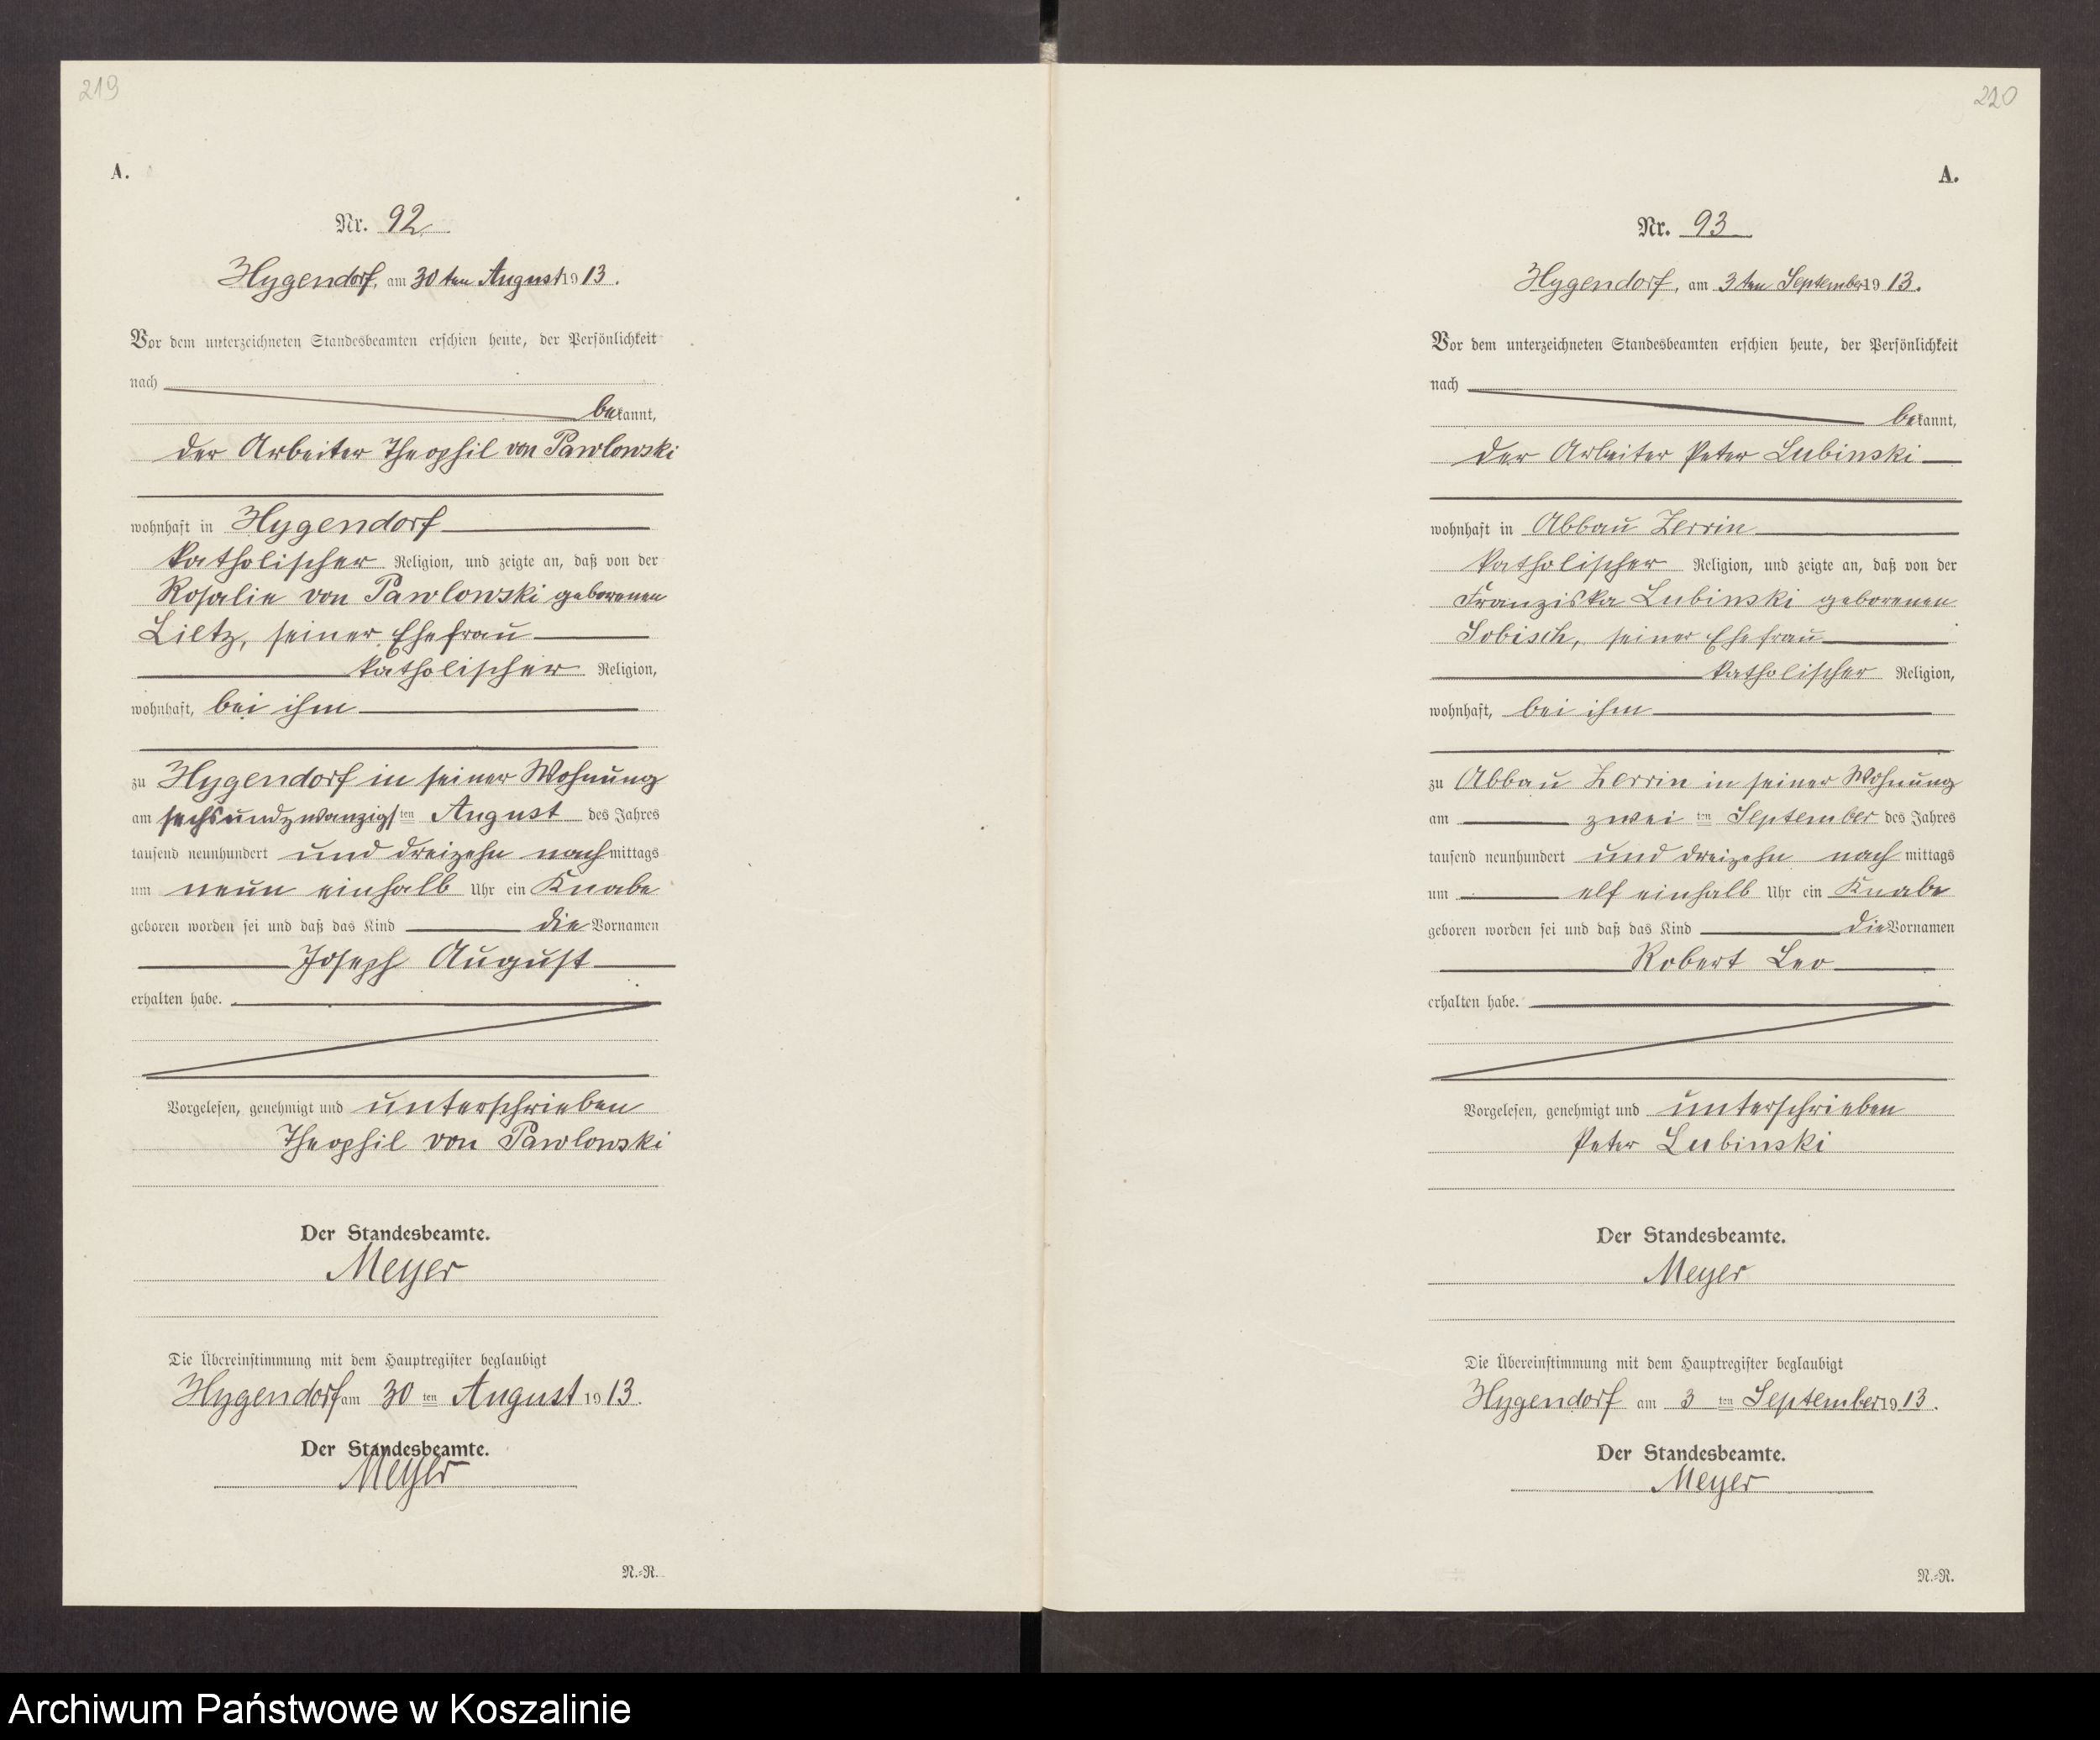 219
A.
Nr. 92
Hygendorf, am 30ten August 1913.
Vor dem unterzeichneten Standesbeamten erschien heute, der Persönlichkeit
nach
bekannt,
der Arbeiter Theophil von Pawlowski
wohnhaft in Hygendorf
katholischer Religion, und zeigte an, daß von der
Rosalie von Pawlowski geborenen
Lietz, seiner Ehefrau
katholischer Religion,
wohnhaft, bei ihm
zu Hygendorf in seiner Wohnung
am sechsundzwanzigsten August des Jahres
tausend neunhundert und dreizehn nachmittags
um neun einhalb Uhr ein Knabe
geboren worden sei und daß das Kind die Vornamen
Joseph August
erhalten habe.
Vorgelesen, genehmigt und unterschrieben
Theophil von Pawlowski
Der Standesbeamte.
Meyer
Die Übereinstimmung mit dem Hauptregister beglaubigt
Hygendorf am 30ten August 1913.
Der Standesbeamte.
Meyer
N.-R.
220
A.
Nr. 93
Hygendorf, am 3ten September 1913.
Vor dem unterzeichneten Standesbeamten erschien heute, der Persönlichkeit
nach
bekannt,
der Arbeiter Peter Lubinski
wohnhaft in Abbau Zerrin
katholischer Religion, und zeigte an, daß von der
Franziska Lubinski geborenen
Sobisch, seiner Ehefrau
katholischer Religion,
wohnhaft, bei ihm
zu Abbau Zerrin in seiner Wohnung
am zweiten September des Jahres
tausend neunhundert und dreizehn nachmittags
um elf einhalb Uhr ein Knabe
geboren worden sei und daß das Kind die Vornamen
Robert Leo
erhalten habe.
Vorgelesen, genehmigt und unterschrieben
Peter Lubinski
Der Standesbeamte.
Meyer
Die Übereinstimmung mit dem Hauptregister beglaubigt
Hygendorf am 3ten September 1913.
Der Standesbeamte.
Meyer
N.-R.
Archiwum Państwowe w Koszalinie